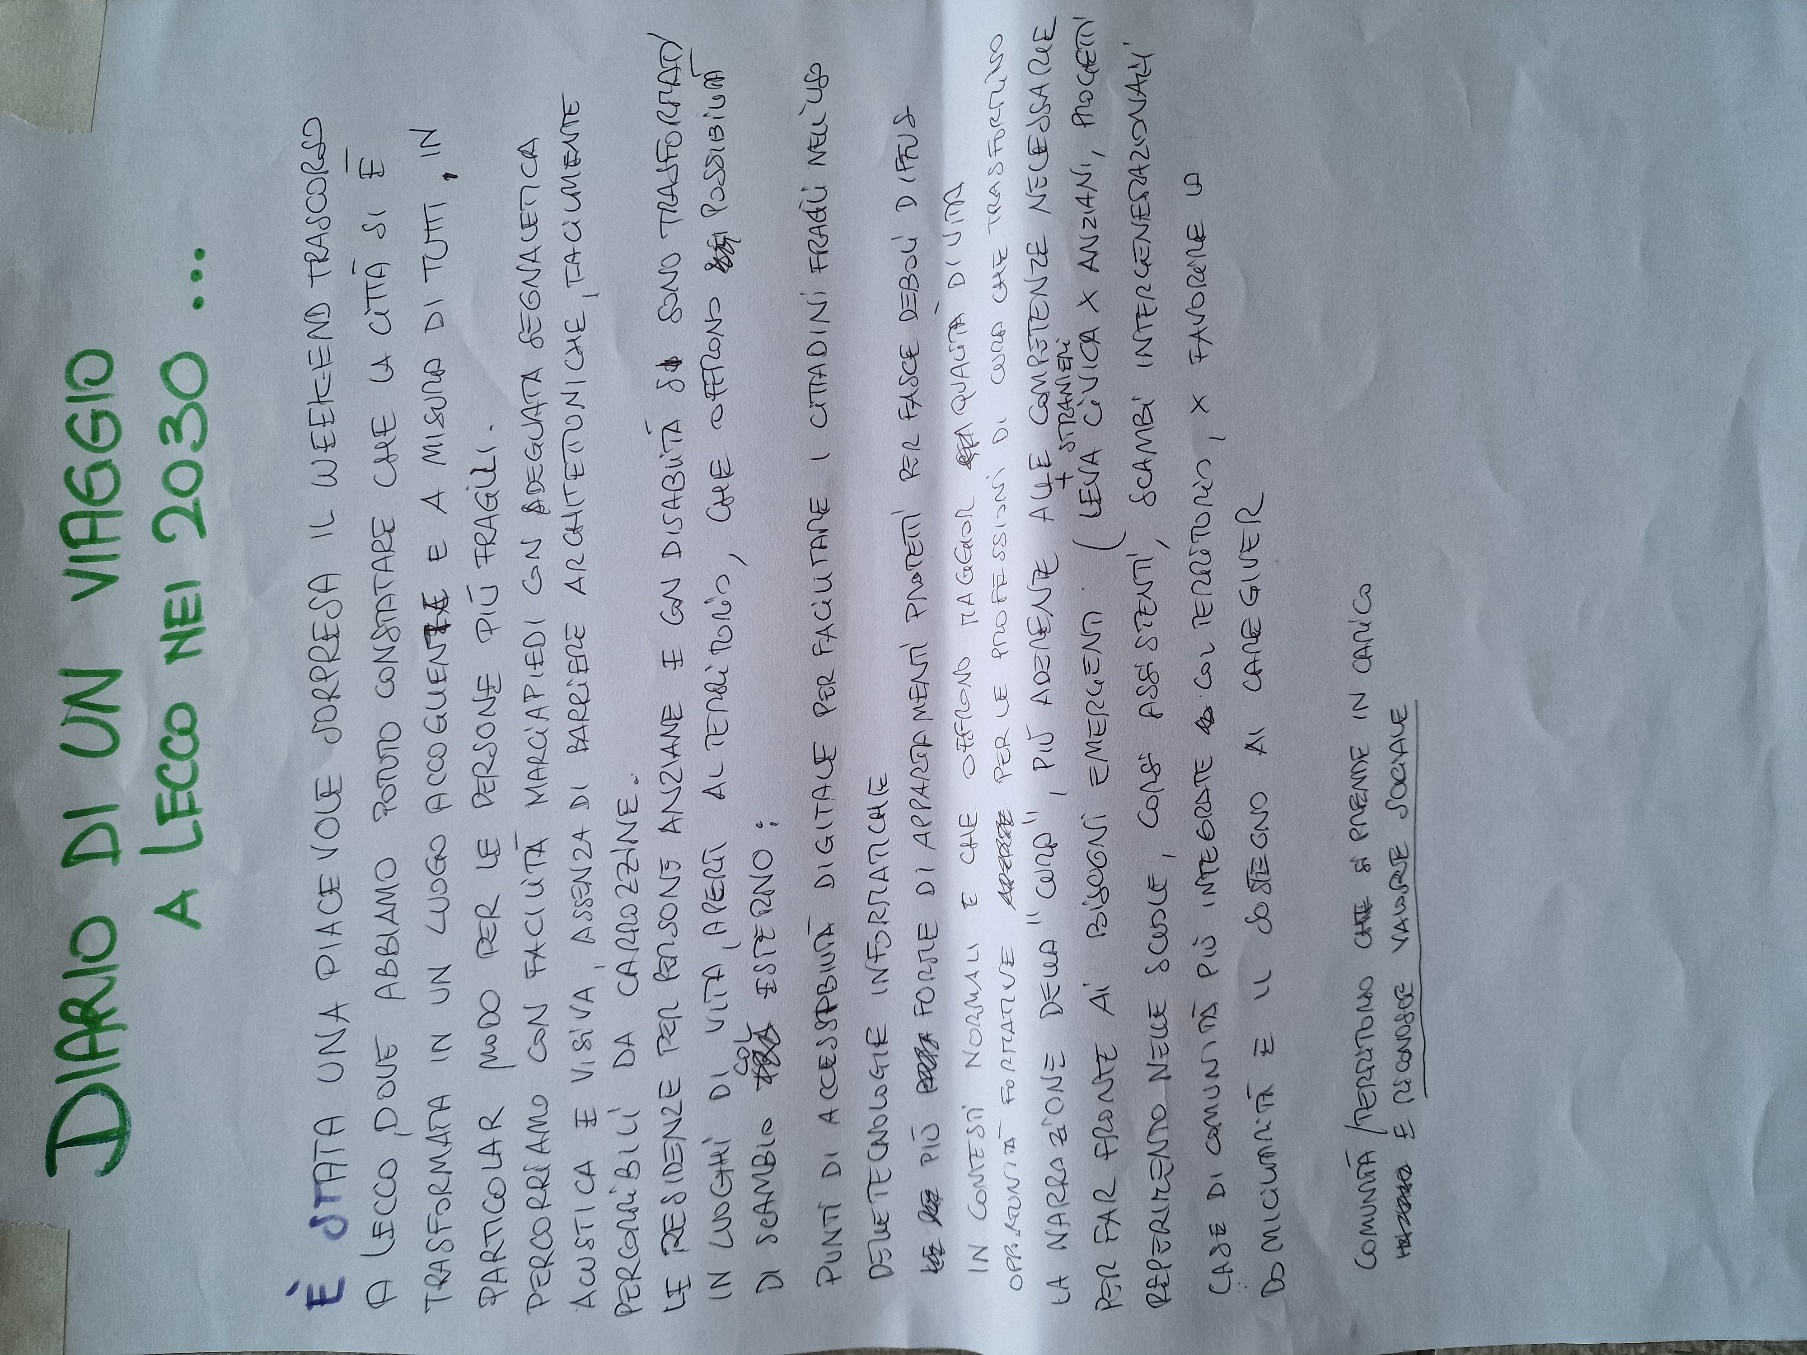 DIARIO DI UN VIAGGIO
A LECCO NEI 2030 ...
È STATA UNA PIACEVOLE SORPRESA IL WEEKEND TRASCORSO
A LECCO, DOVE ABBIAMO POTUTO CONSTATARE CHE LA CITTÀ SI È
TRASFORMATA IN UN LUOGO ACCOGLIENTE E A MISURA DI TUTTI, IN
PARTICOLAR MODO PER LE PERSONE PIÙ FRAGILI.
PERCORRIAMO CON FACILITÀ MARCIAPIEDI CON ADEGUATA SEGNALETICA
ACUSTICA E VISIVA, ASSENZA DI BARRIERE ARCHITETTONICHE, FACILMENTE
PERCORRIBILI DA CARROZZINE.
LE RESIDENZE PER PERSONE ANZIANE E CON DISABILITÀ SI SONO TRASFORMATI
IN LUOGHI DI VITA, APERTI AL TERRITORIO, CHE OFFRONO POSSIBILITÀ
DI SCAMBIO COL ESTERNO:
PUNTI DI ACCESSIBILITÀ DIGITALE PER FACILITARE I CITTADINI FRAGILI NELL'USO
DELLE TECNOLOGIE INFORMATICHE
PIÙ FORME DI APPARTAMENTI PROTETTI PER FASCE DEBOLI DIFFUS
IN CONTESTI NORMALI E CHE OFFRONO MAGGIOR QUALITÀ DI VITA
OPPORTUNITÀ FORMATIVE PER LE PROFESSIONI DI CURA CHE TRASFORMINO
LA NARRAZIONE DELLA "CURA", PIÙ ADERENTE ALLE COMPETENZE NECESSARIE
+ STRANIERI
PER FAR FRONTE AI BISOGNI EMERGENTI. (LEVA CIVICA X ANZIANI, PROGETTI
REPERIMENTO NELLE SCUOLE, CORSI ASSISTENTI, SCAMBI INTERGENERAZIONALI
CASE DI COMUNITÀ PIÙ INTEGRATE COL TERRITORIO, X FAVORIRE LA
DOMICILIARITÀ E IL SOSTEGNO AI CAREGIVER
COMUNITÀ/TERRITORIO CHE SI PRENDE IN CARICO
E RICONOSCE VALORE SOCIALE